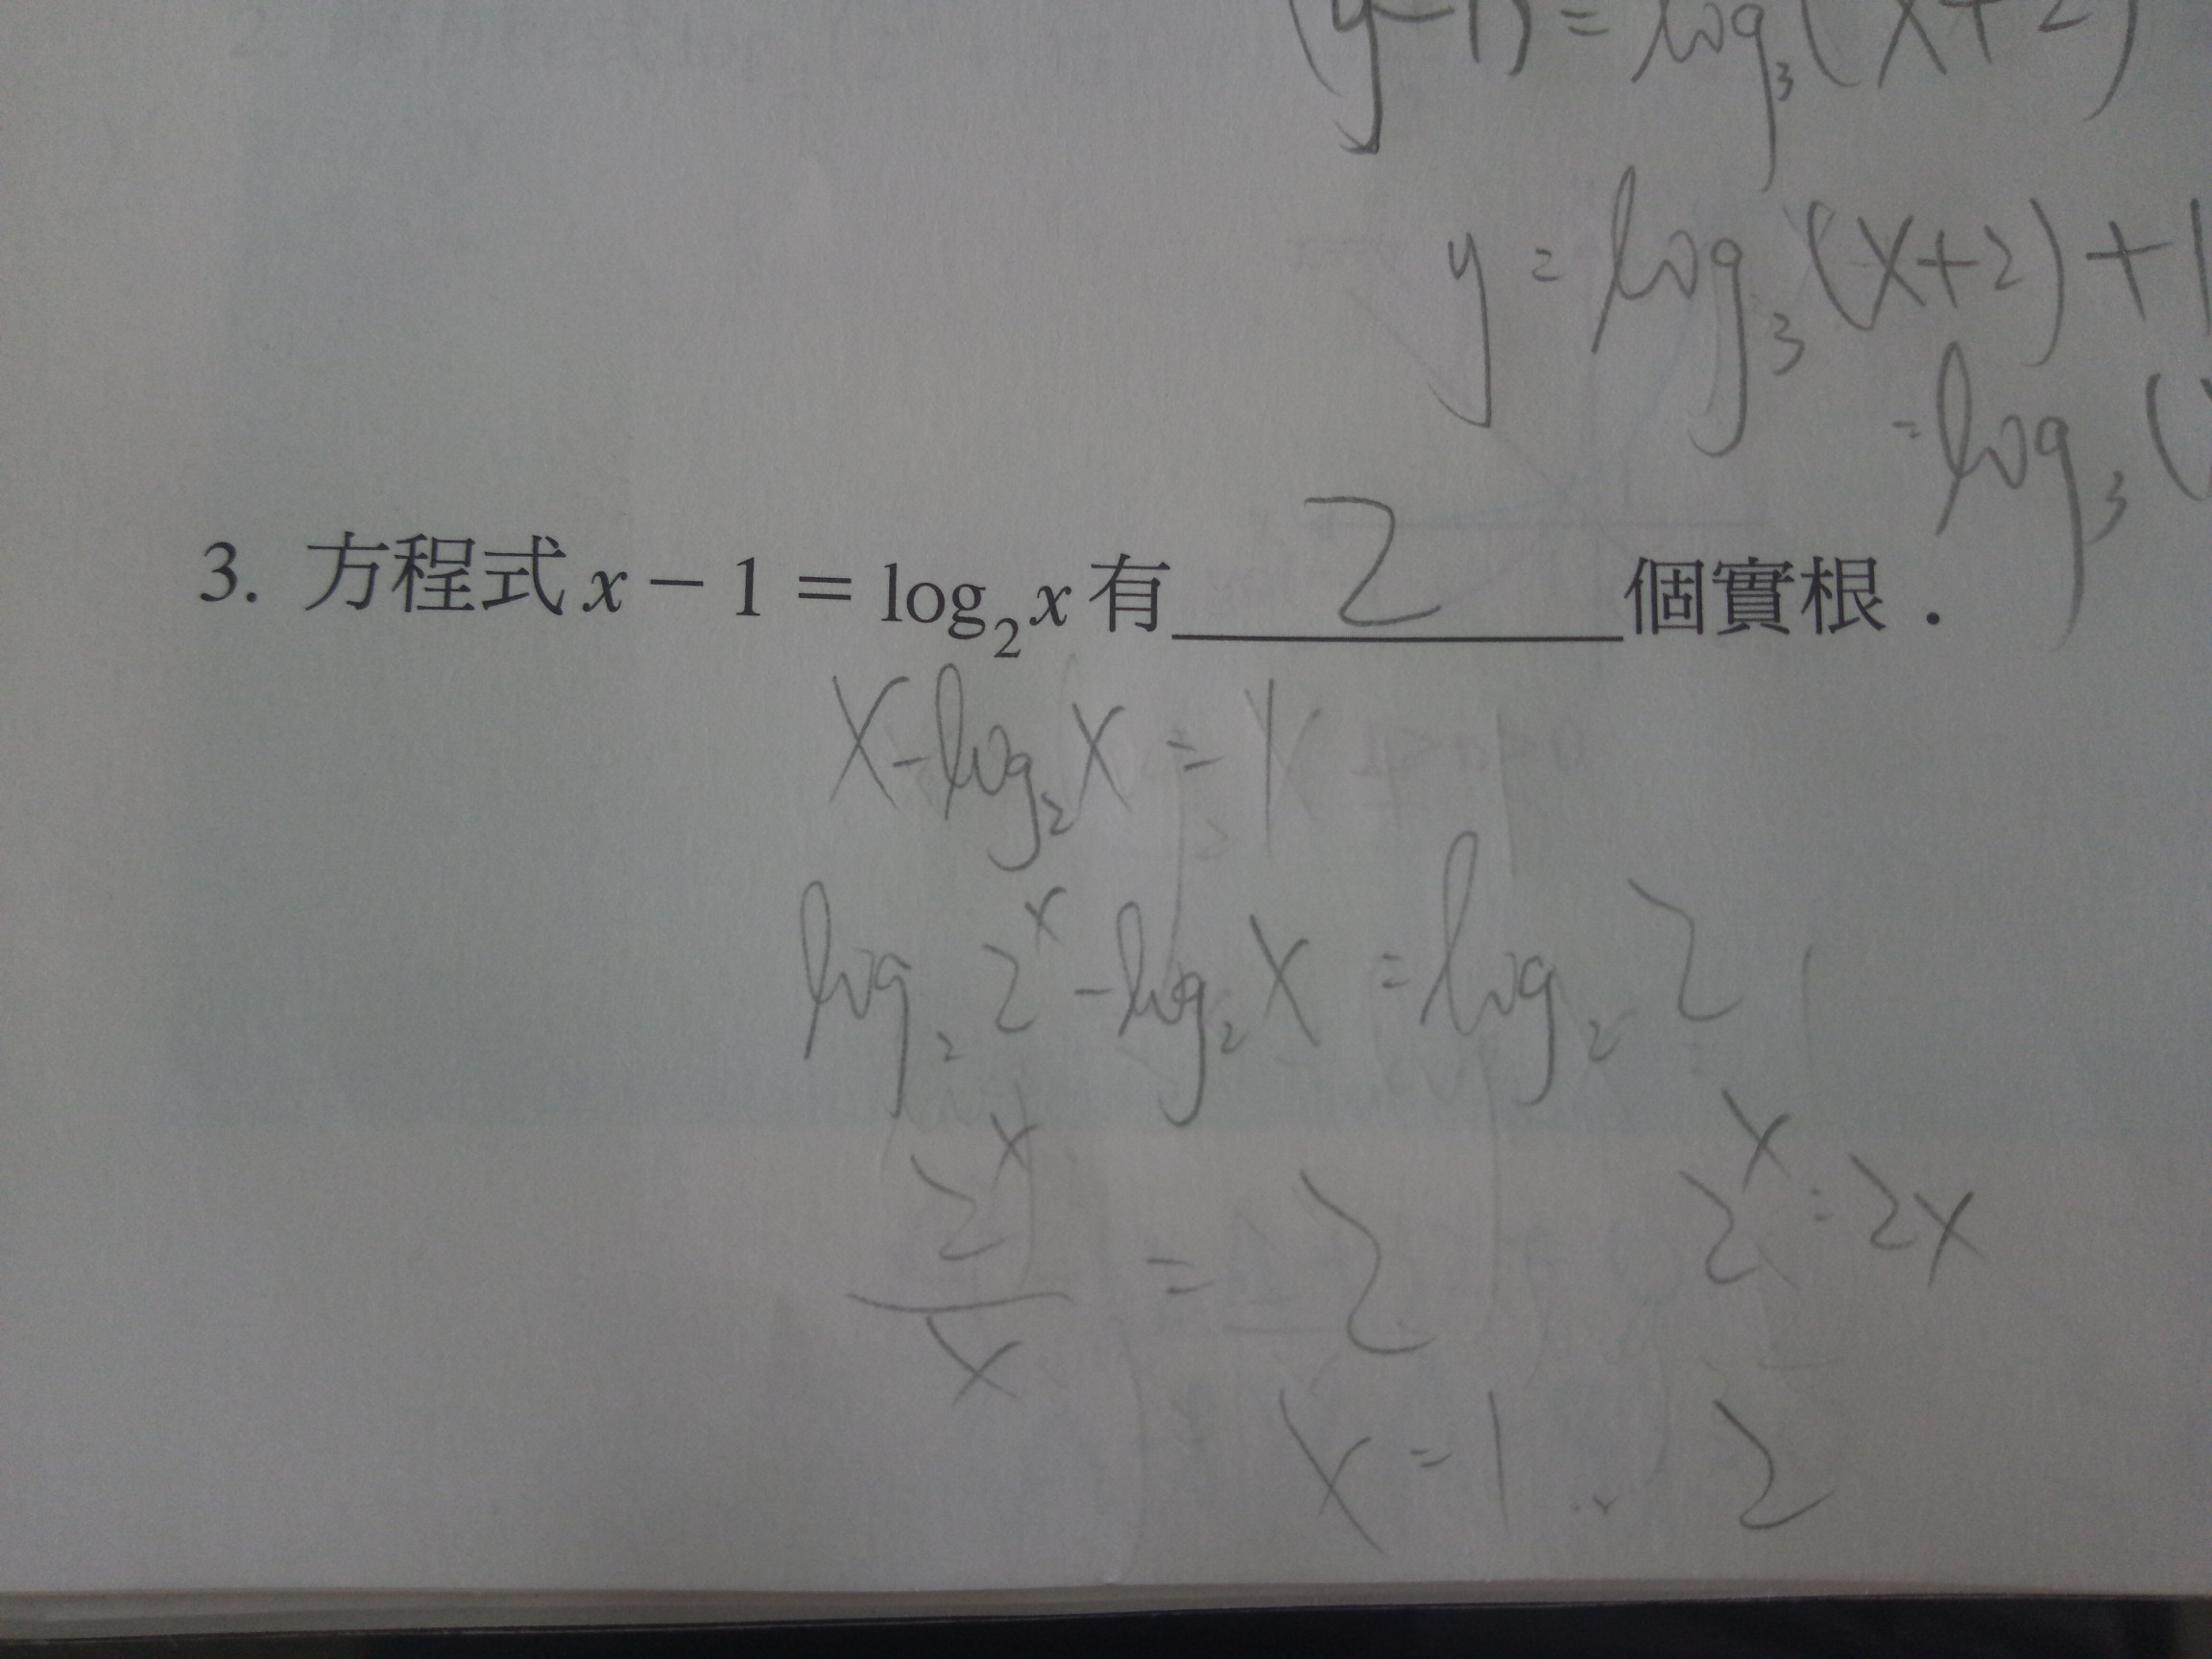 (y-1) = log₃(x+2)
y = log₃(x+2)+1
= log₃(
3. 方程式 x − 1 = log₂x 有 2 個實根．
x-log₂x = 1
log₂2ˣ - log₂x = log₂2
2ˣ/x = 2 2ˣ = 2x
x = 1 .. 2